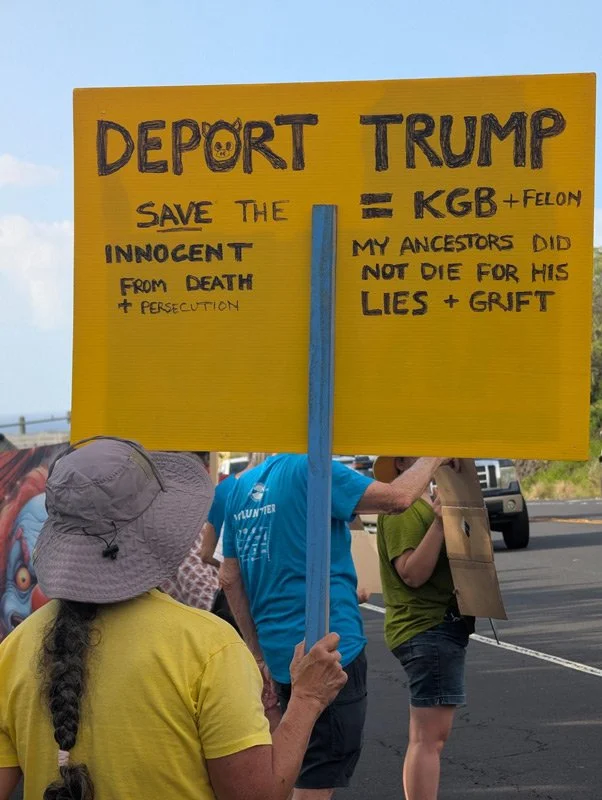 DEPORT TRUMP
SAVE THE
INNOCENT
FROM DEATH
+ PERSECUTION
= KGB + FELON
MY ANCESTORS DID
NOT DIE FOR HIS
LIES + GRIFT
VOLUNTEER